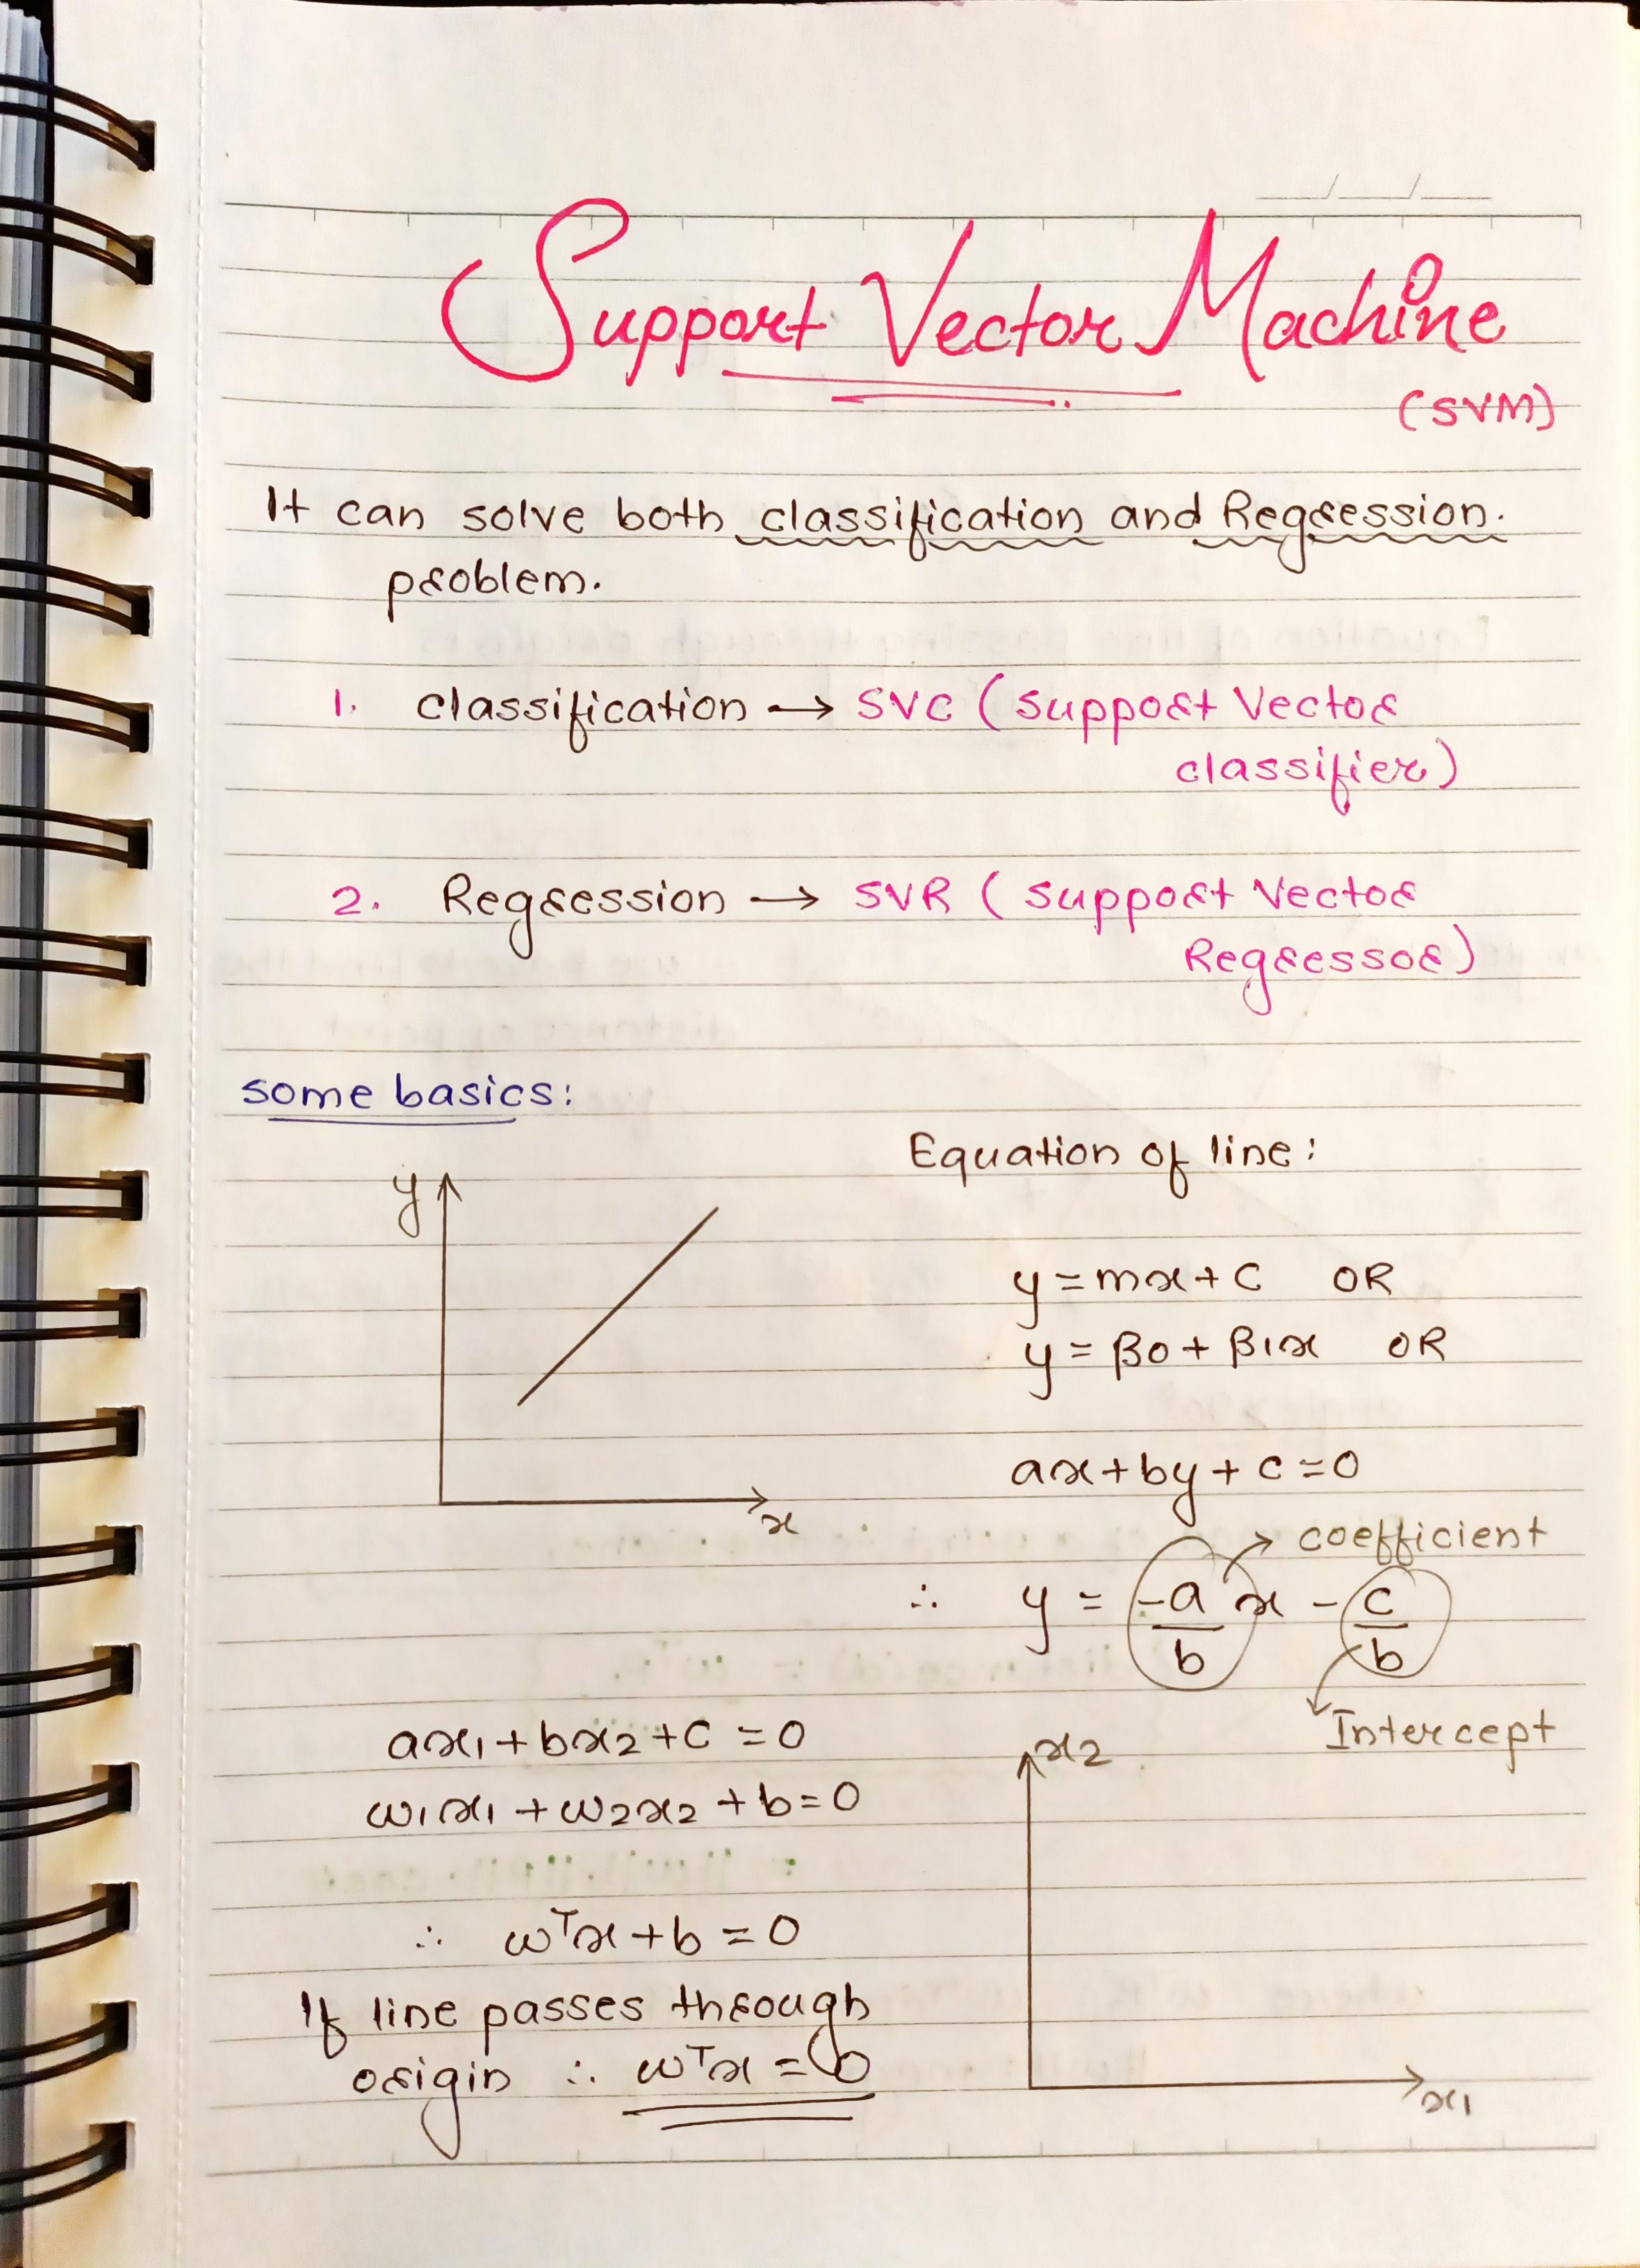 Support Vector Machine
(SVM)
It can solve both classification and Regression.
problem.
1. classification → SVC (Support Vector
classifier)
2. Regression → SVR (Support Vector
Regressor)
some basics:
Equation of line:
y
x
y = mx + c OR
y = β0 + β1x OR
ax + by + c = 0
coefficient
∴ y = -a/b x - c/b
Intercept
ax1 + bx2 + c = 0
w1x1 + w2x2 + b = 0
∴ wᵀx + b = 0
If line passes through
origin ∴ wᵀx = 0
x2
x1